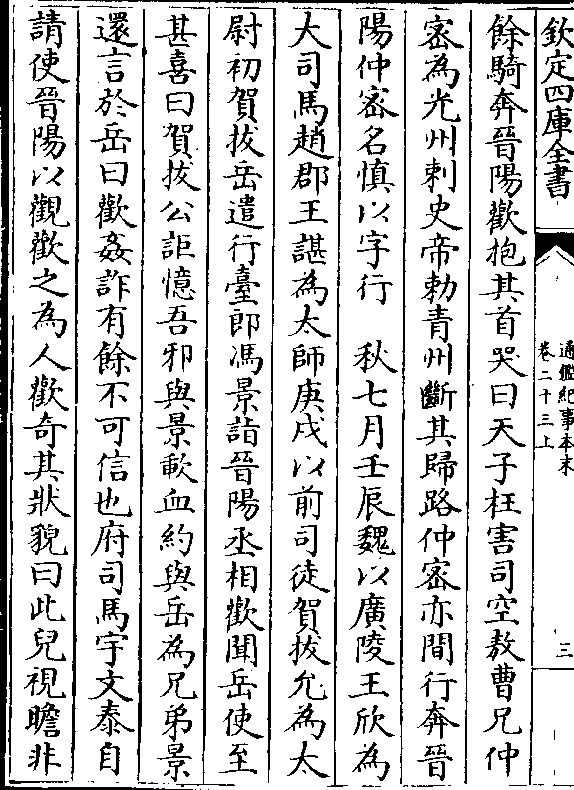 欽定四庫全書
通鑑紀事本末
卷二十三上
三
餘騎奔晉陽歡抱其首哭曰天子枉害司空敖曹兄仲
宻為光州刺史帝勅青州斷其歸路仲宻亦間行奔晉
陽仲宻名慎以字行　秋七月壬辰魏以廣陵王欣為
大司馬趙郡王諶為太師庚戌以前司徒賀拔允為太
尉初賀拔岳遣行臺郎馮景詣晉陽丞相歡聞岳使至
甚喜曰賀拔公詎憶吾邪與景歃血約與岳為兄弟景
還言於岳曰歡姦詐有餘不可信也府司馬宇文泰自
請使晉陽以觀歡之為人歡奇其狀貌曰此兒視瞻非